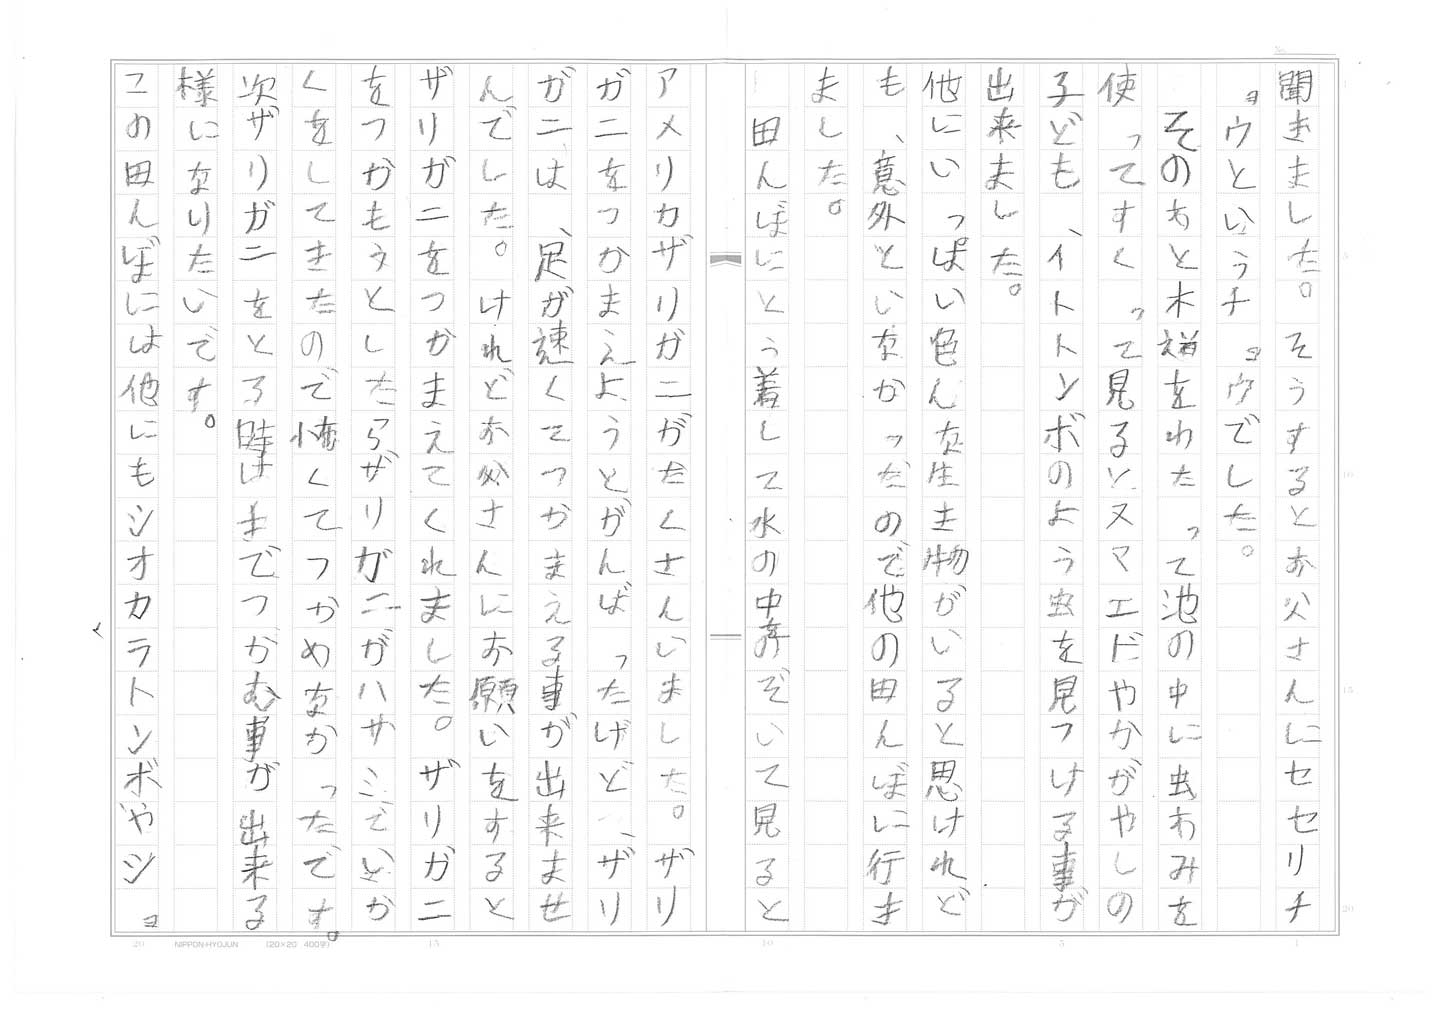 聞きました。そうするとお父さんにセセリチ
ョウというチョウでした。
そのあと木道をわたって池の中に虫あみを
使ってすくって見るとヌマエビやかがやしの
子ども、イトトンボのよう虫を見つける事が
出来ました。
他にいっぱい色んな生き物がいると思けれど
も、意外といなかったので他の田んぼに行き
ました。
田んぼにとう着して水の中をのぞいて見ると
アメリカザリガニがたくさんいました。ザリ
ガニをつかまえようとがんばったけど、ザリ
ガニは、足が速くてつかまえる事が出来ませ
んでした。けれどお父さんにお願いをすると
ザリガニをつかまえてくれました。ザリガニ
をつかもうとしたらザリガニがハサミでいか
くをしてきたので怖くてつかめなかったです。
次ザリガニをとる時は手でつかむ事が出来る
様になりたいです。
この田んぼには他にもシオカラトンボやショ
NIPPON-HYOJUN (20×20 400字)
No.
1
5
10
15
20
5
10
15
20